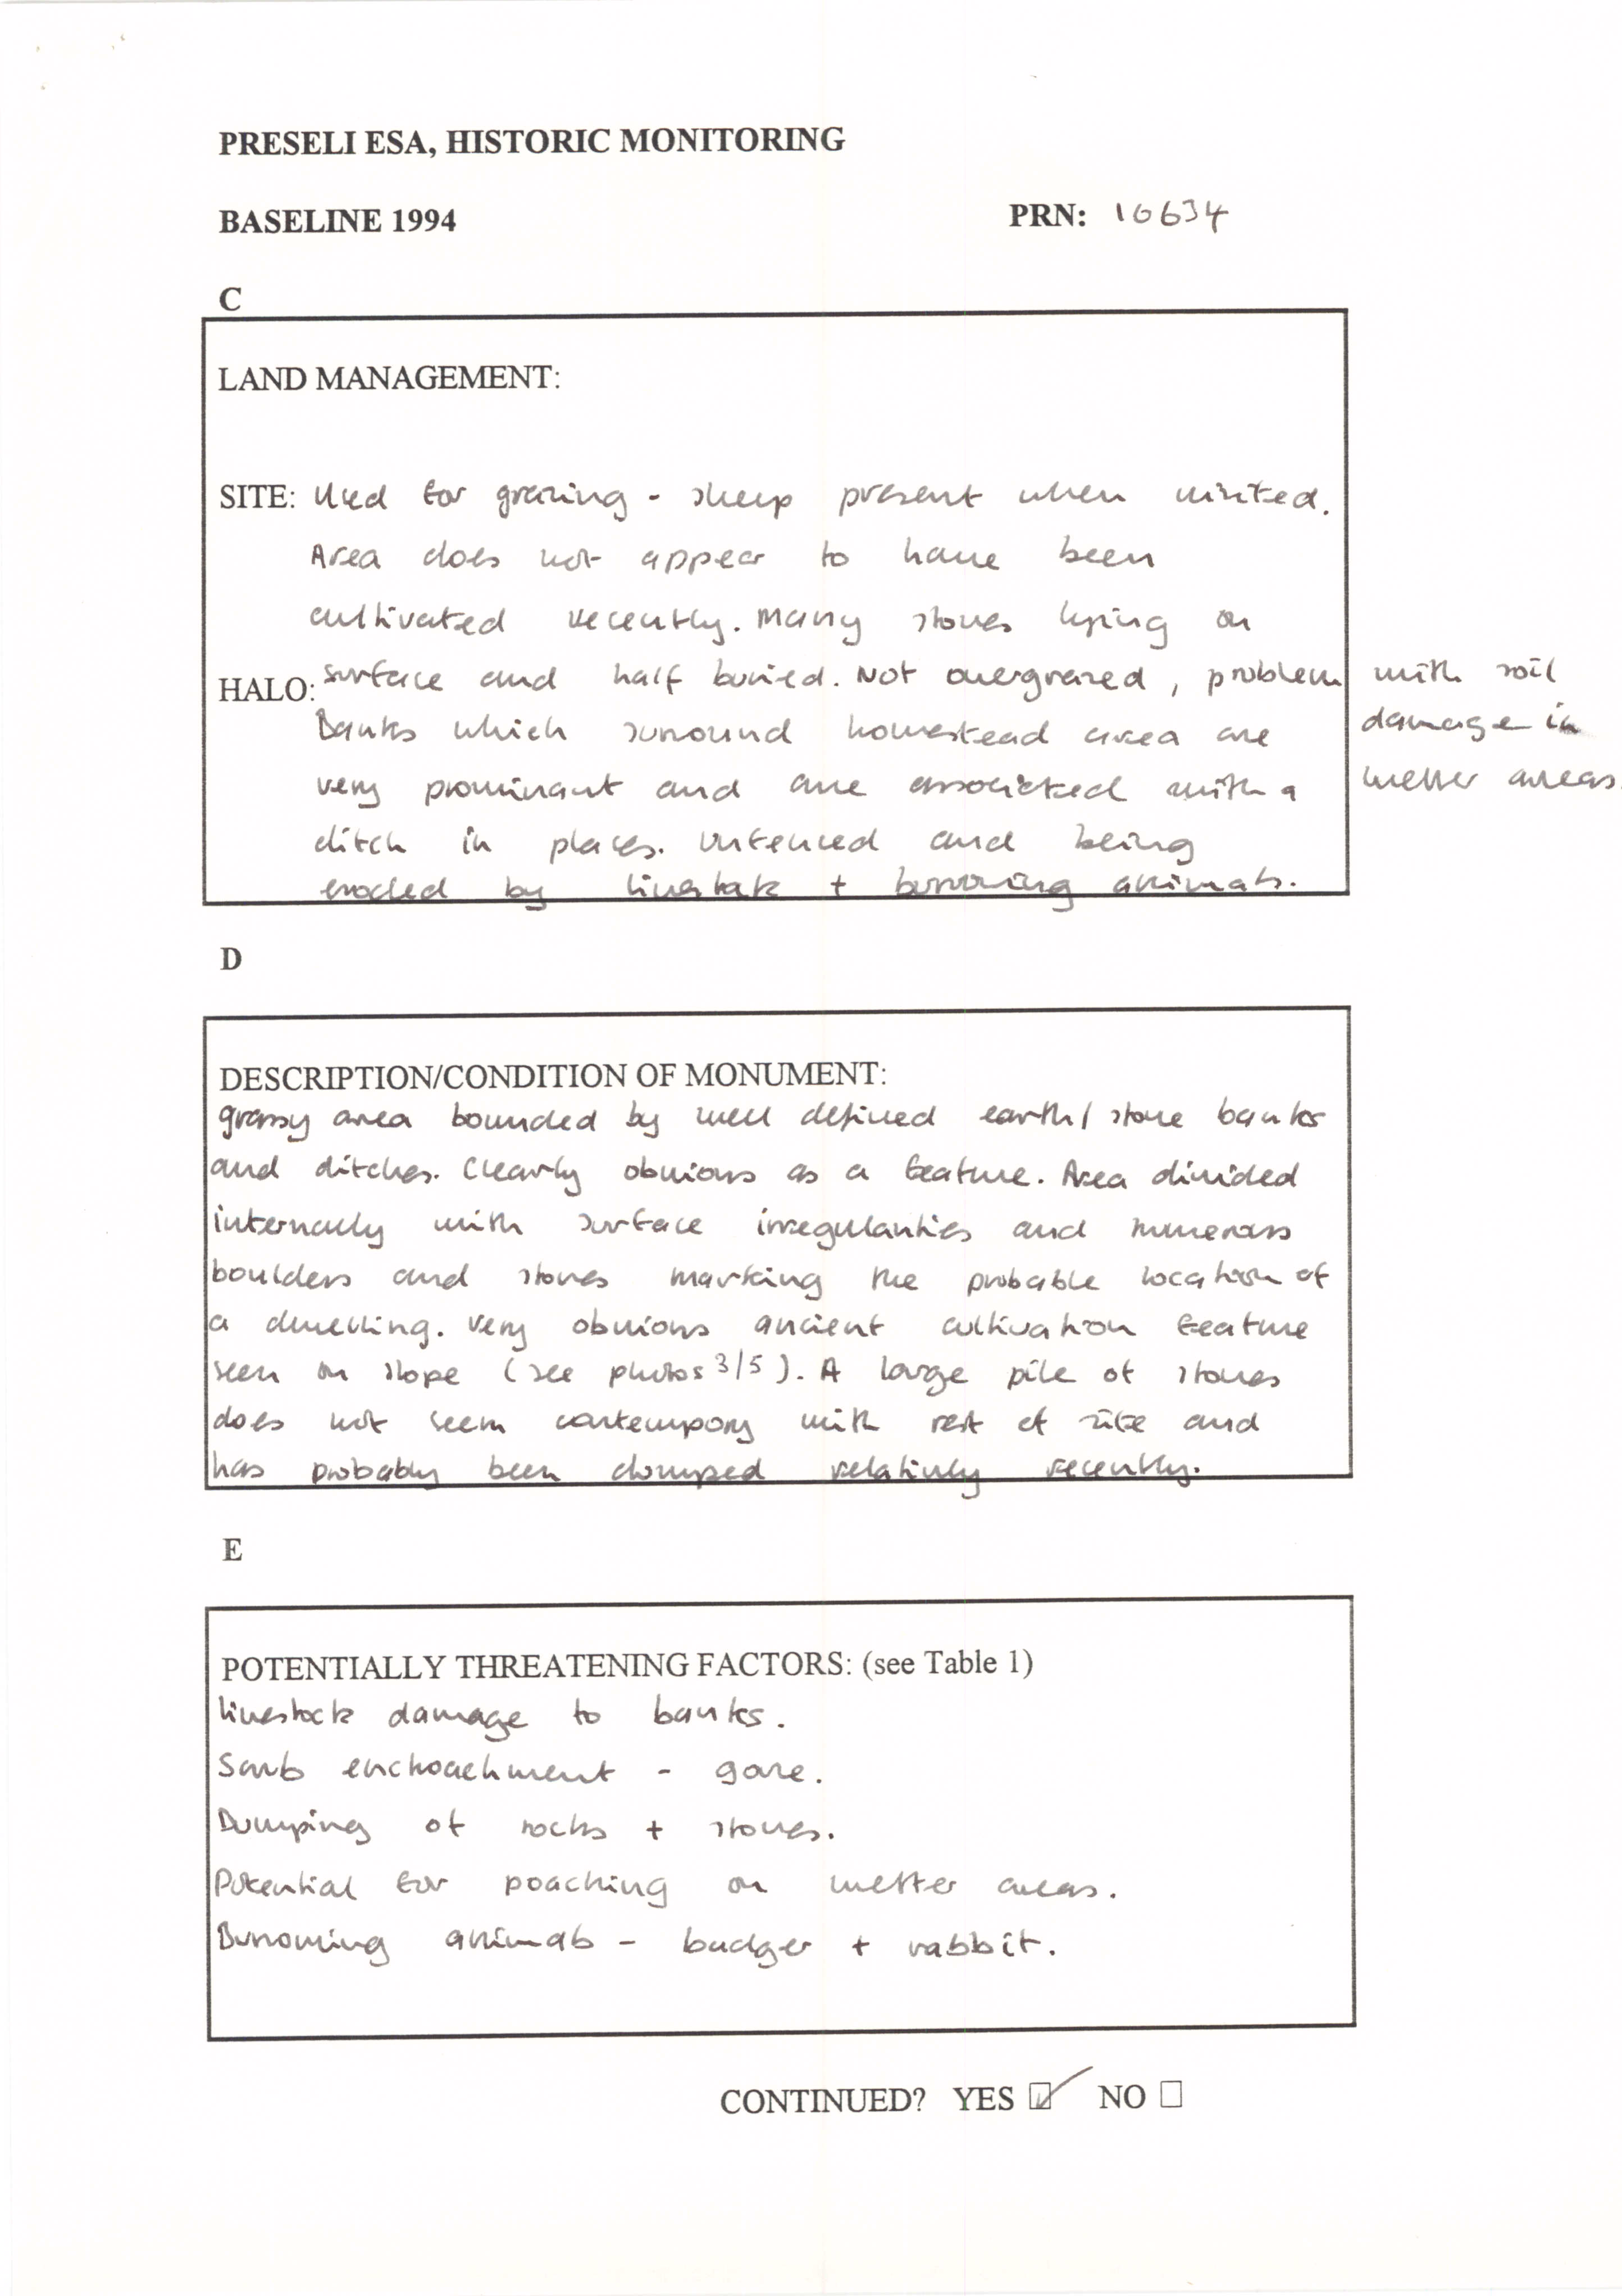 PRESELI ESA, HISTORIC MONITORING
BASELINE 1994 PRN: 10634
C
LAND MANAGEMENT:
SITE: Used for grazing - sheep present when visited.
Area does not appear to have been
cultivated recently. Many stones lying on
HALO: surface and half buried. Not overgrazed, problem with soil
damage in
wetter areas.
Banks which surround homestead area are
very prominant and are associated with a
ditch in places. Unfenced and being
eroded by livestock + burrowing animals.
D
DESCRIPTION/CONDITION OF MONUMENT:
grassy area bounded by well defined earth/stone banks
and ditches. Clearly obvious as a feature. Area divided
internally with surface irregularities and numerous
boulders and stones marking the probable location of
a dwelling. Very obvious ancient cultivation feature
seen on slope (see photos 3/5). A large pile of stones
does not seem contempory with rest of site and
has probably been dumped relativly recently.
E
POTENTIALLY THREATENING FACTORS: (see Table 1)
livestock damage to banks.
Scrub enchroachment - gorse.
Dumping of rocks + stones.
Potential for poaching on wetter areas.
Burrowing animals - badger + rabbit.
CONTINUED? YES ☑ NO ☐